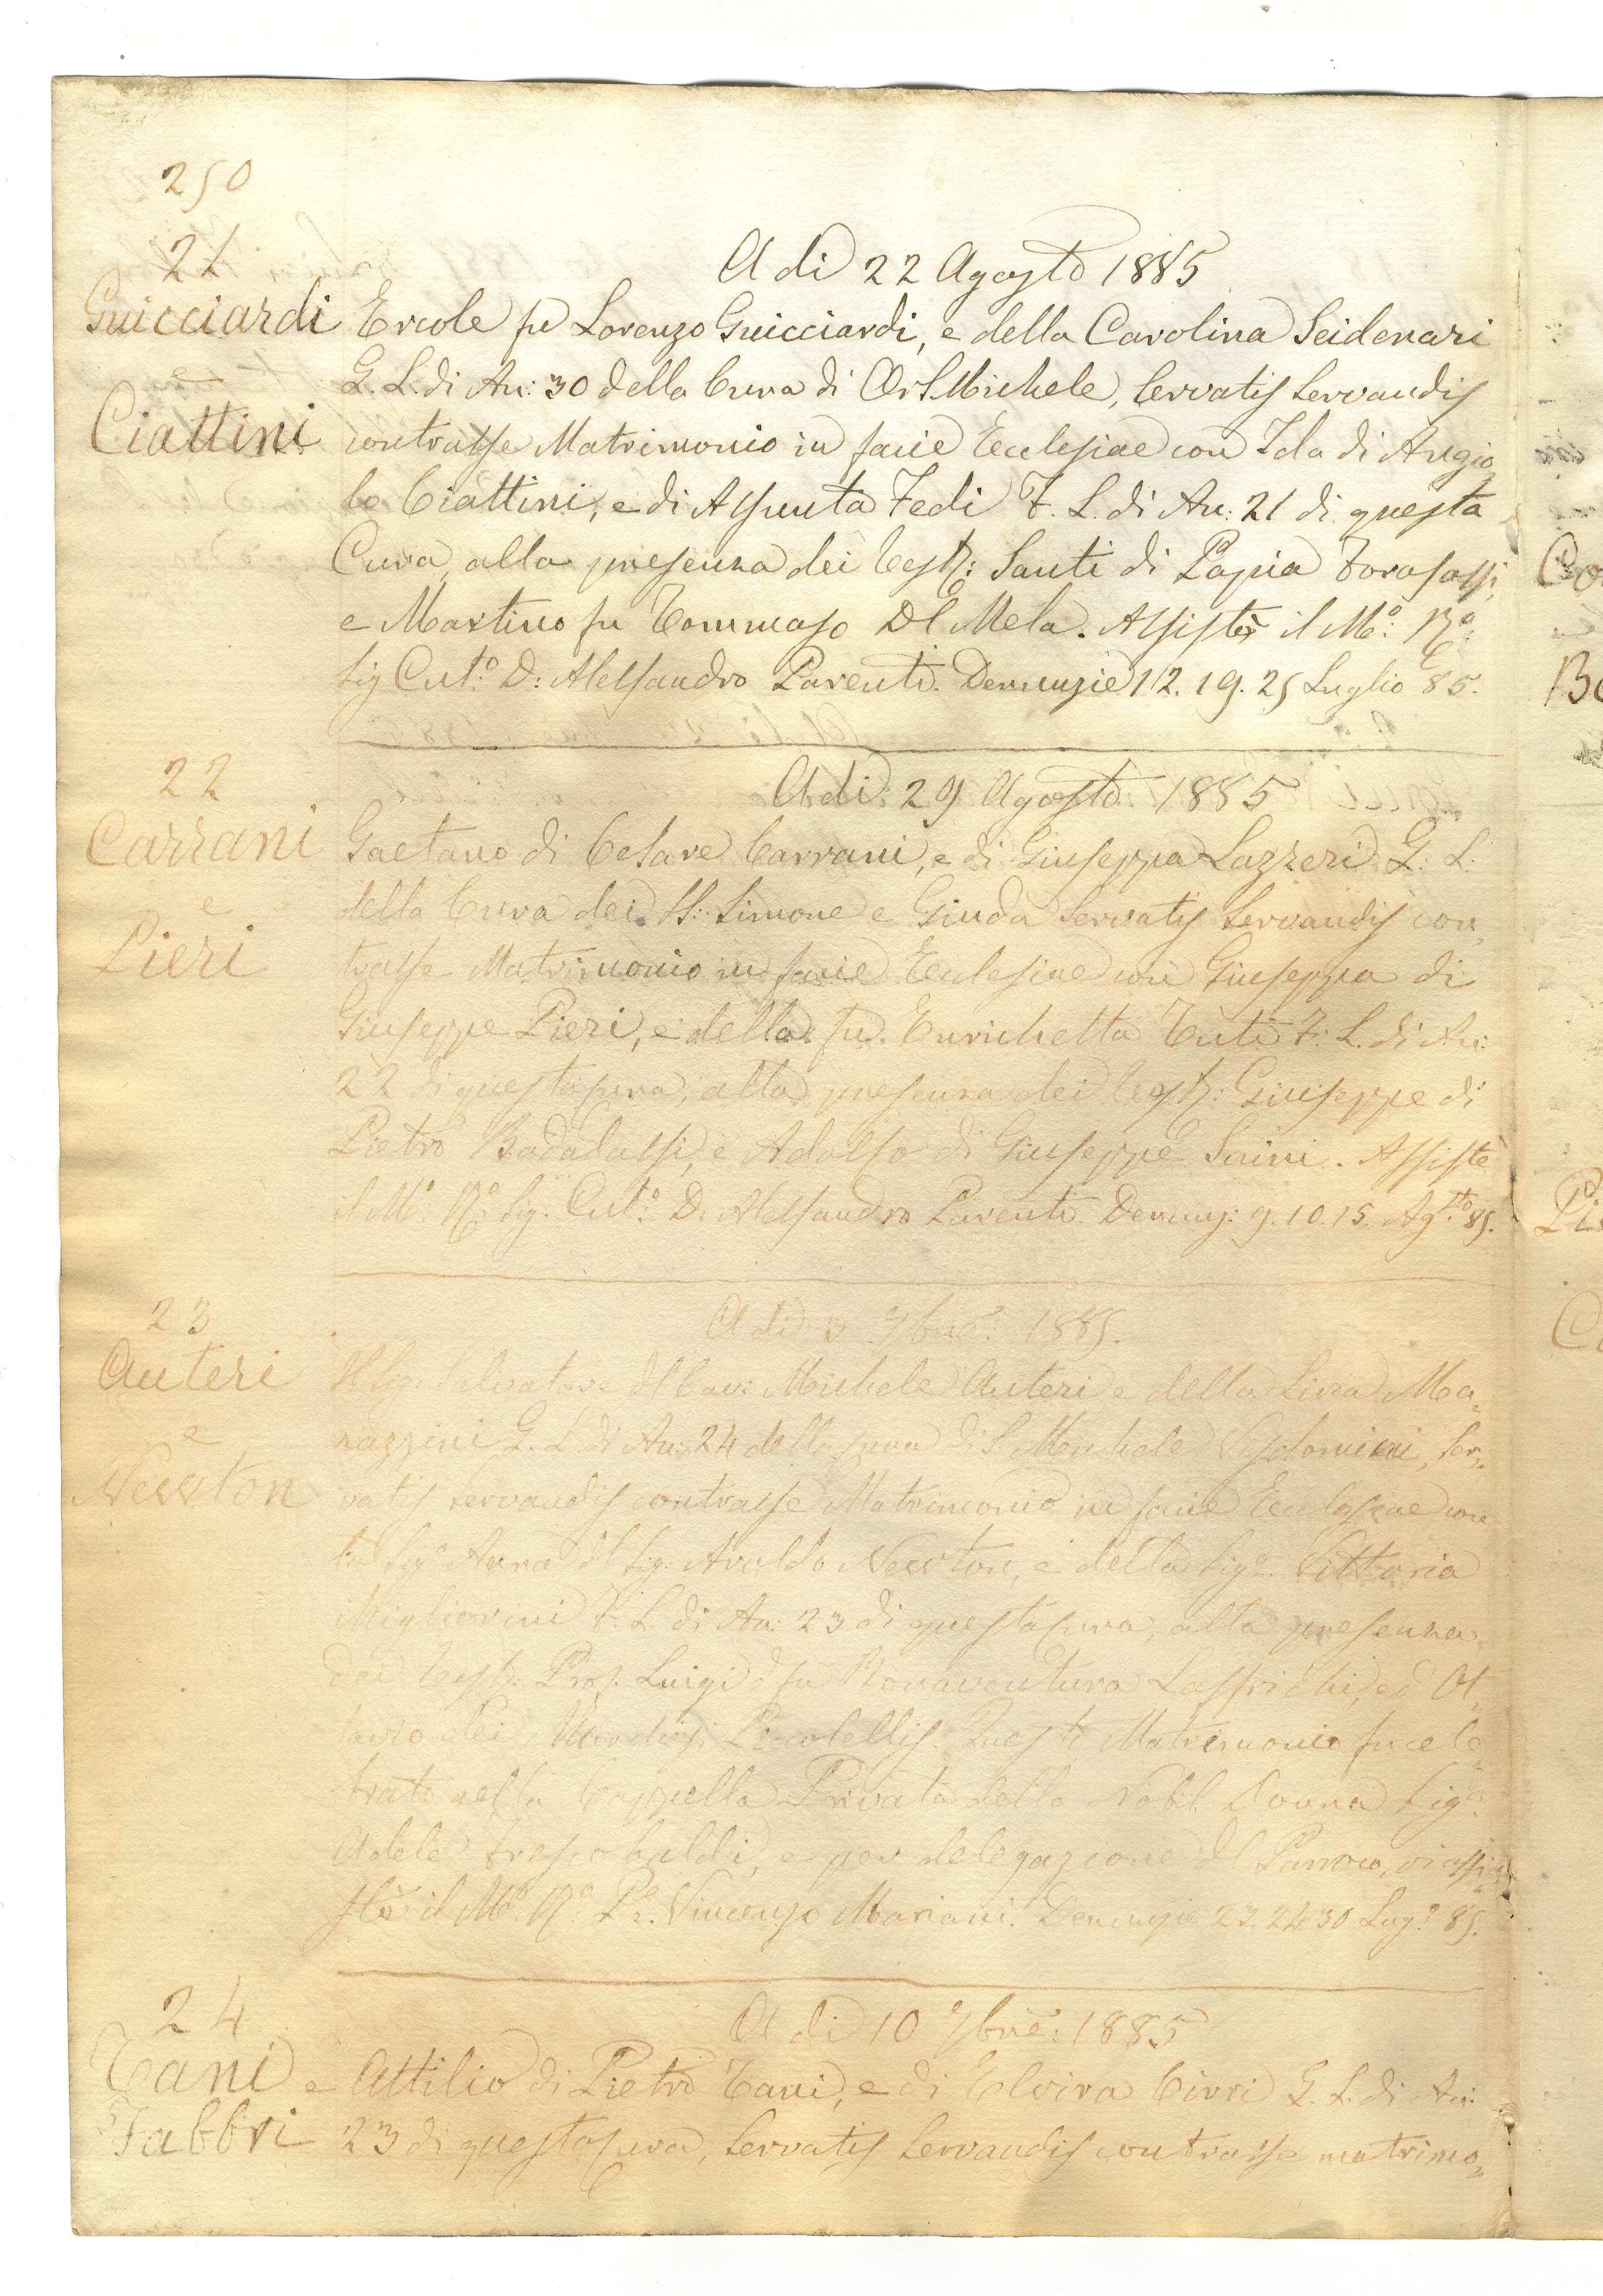 250
21
Guicciardi
e
Ciattini
A dì 22 Agosto 1885
Ercole fu Lorenzo Guicciardi, e della Carolina Seidenari
G. L. di An: 30 della Cura di Or S. Michele, Servatis Servandis
contrasse Matrimonio in facie Ecclesiae con Ida di Angio„
lo Ciattini, e di Assunta Fedi F. L. di An: 21 di questa
Cura, alla presenza dei Test: Santi di Papia Forasassi,
e Martino fu Tommaso Dl Mela. Assistè il Mº: Rº:
Sig Cutº: D: Alessandro Parenti. Denunzie 12. 19. 25 Luglio 85.
22
Carrani
e
Pieri
A dì 29 Agosto 1885
Gaetano di Cesare Carrani, e di Giuseppa Lazzeri G: L:
della Cura dei SS: Simone e Giuda Servatis Servandis con„
trasse Matrimonio in facie Ecclesiae con Giuseppa di
Giuseppe Pieri, e della fu Enrichetta Tuti F: L. di An:
22 di questa Cura, alla presenza dei Test: Giuseppe di
Pietro Badalassi, e Adolfo di Giuseppe Saini. Assistè
il Mº: Rº: Sig. Cutº: D. Alessandro Parenti. Denunz: 9. 10. 15. Agsto 85.
23
Auteri
e
Newton
A dì 3 7bre: 1885.
Il Sig: Salvatore Dl Cav: Michele Auteri e della Ma„
razzini G. L. di An: 24 della Cura di S. Michele Visdomini, Ser„
vatis Servandis contrasse Matrimonio in facie Ecclesiae con
la Sigª Anna Dl Sig. Avaldo Newton, e della Sigª. Vittoria
Migliorini F. L. di An: 23 di questa Cura, alla presenza
dei Test: Prof. Luigi fu Bonaventura ed Ot„
tavio dei Marchesi Piccolellis. Questo Matrimonio fu cele„
brato nella Cappella Privata della Nobil Donna Sigª
Adele Frescobaldi, e per delegazione Dl Parroco, vi assi„
stè il Mº: Rº: Pe. Vincenzo Mariani. Denunzie 23. 24 30 Lugº: 85.
24
Tani e
Fabbri
A dì 10 7bre: 1885
Attilio di Pietro Tani, e di Elvira Cirri G. L. di An:
23 di questa Cura, Servatis Servandis contrasse matrimo„